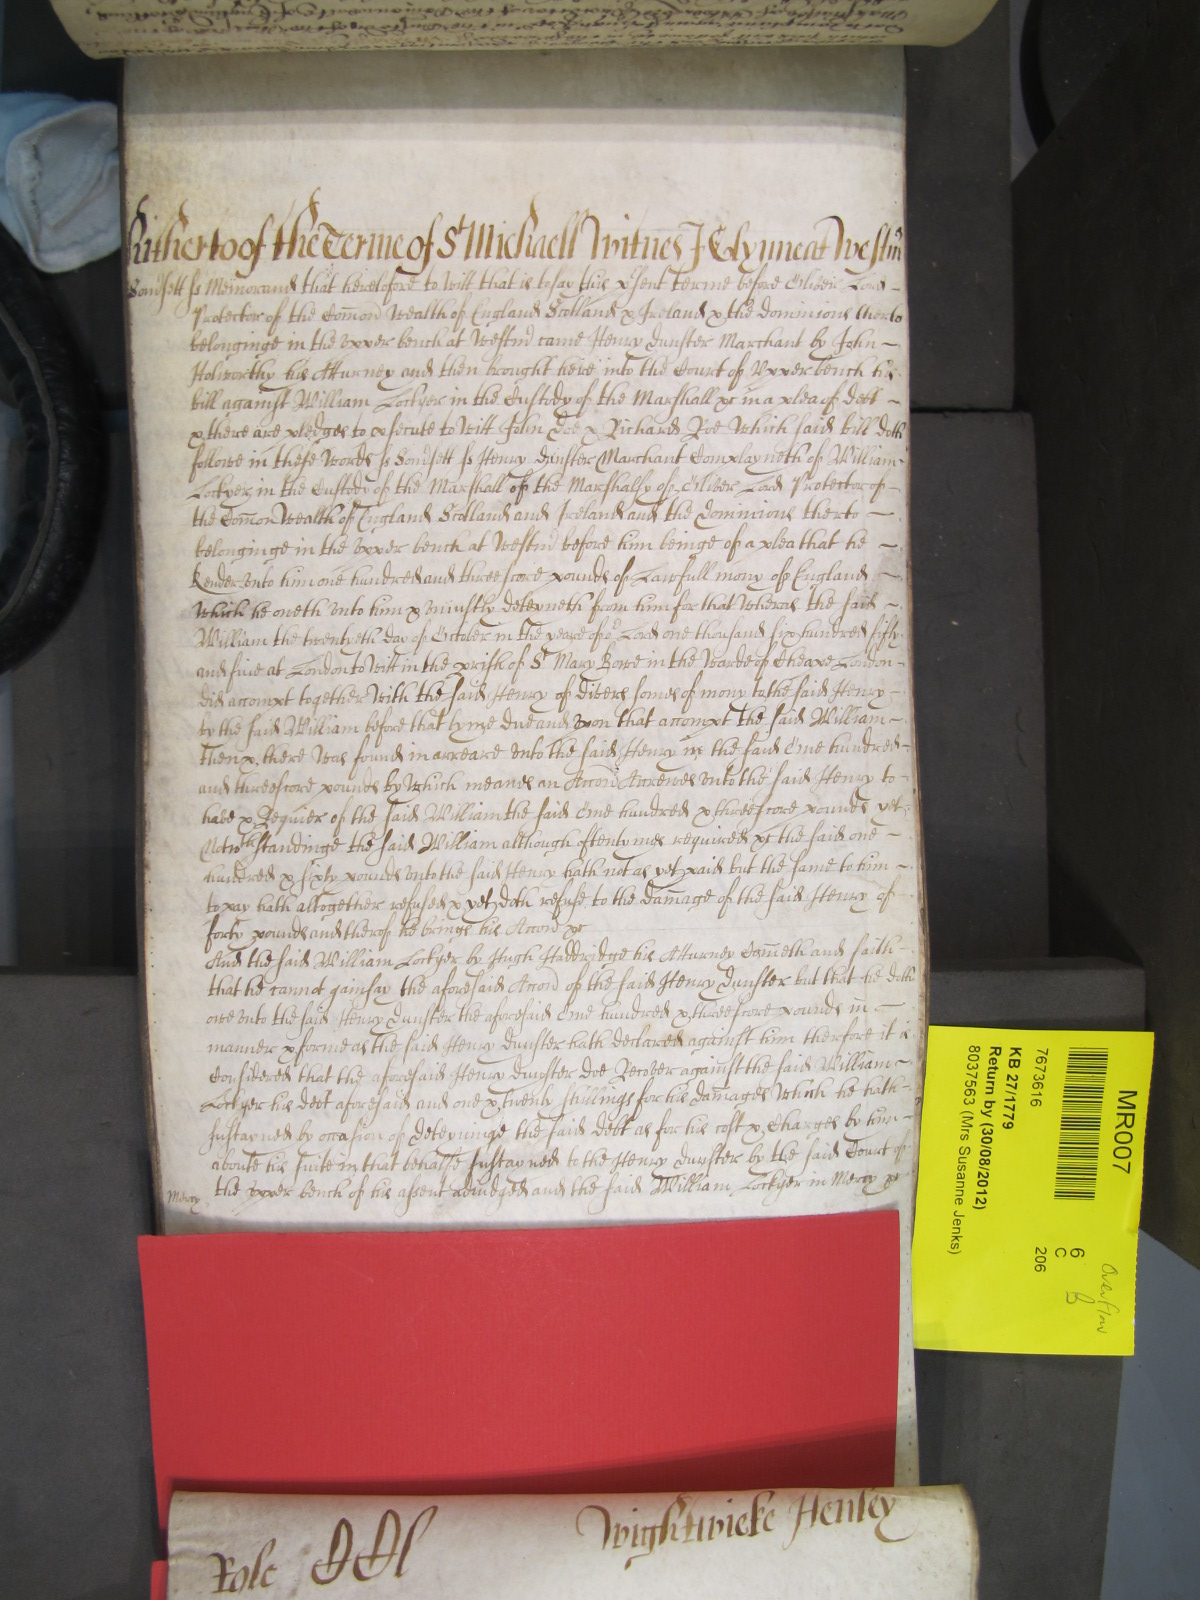 Hitherto of the Terme of St Michaell Witnes J Glynne at Westm
Somsett ss Memorand that heretofore to Witt that is to say this psent terme before Oliver Lord
Protector of the Comon Wealth of England Scotland & Ireland & the dominions therto
belonginge in the upper bench at Westm came Henry Dunster Marchant by John
Holworthy his Atturney and then brought here into the Court of Upper bench his
bill against William Lockyer in the Custody of the Marshall &c in a plea of debt
& there are pledges to psecute to Witt John Doe & Richard Roe Which said bill doth
followe in these Words ss Somsett ss Henry Dunster Marchant Complayneth of William
Lockyer in the Custody of the Marshall of the Marshalsy of Oliver Lord Protector of
the Comon Wealth of England Scotland and Ireland and the Dominions therto
belonginge in the upper bench at Westm before him beinge of a plea that he
Render unto him one hundred and three score pounds of Lawfull mony of England
Which he oweth unto him & uniustly deteyneth from him for that Wheras the said
William the twentyeth day of October in the yeare of or Lord one thousand six hundred fifty
and five at London to Witt in the prish of St Mary Bowe in the Warde of Cheape London
did accompt together With the said Henry of divers somes of mony to the said Henry
by the said William before that tyme due and upon that accompt the said William
then & there Was found in arreare unto the said Henry in the said One hundred
and threescore pounds by Which meanes an Accon Accrewed unto the said Henry to
have & Requier of the said William the said One hundred & threescore pounds yet
Notwthstandinge the said William although oftentymes required &c the said one
hundred & sixty pounds unto the said Henry hath not as yet paid but the same to him
to pay hath altogether refused & yet doth refuse to the damage of the said Henry of
forty pounds and therof he brings his Accon &c
And the said William Lockyer by Hugh Hadbridge his Atturney Cometh and saith
that he cannot gainsay the aforesaid Accon of the said Henry Dunster but that he doth
owe unto the said Henry Dunster the aforesaid One hundred & threescore pounds in
manner & forme as the said Henry Dunster hath declared against him therfore it is
Considered that the aforesaid Henry Dunster doe Recover against the said William
Lockyer his debt aforesaid and one & twenty shillings for his damages Which he hath
sustayned by occasion of deteyninge the said debt as for his cost & Charges by him
aboute his suite in that behalfe sustayned to the Henry Dunster by the said Court of
the upper bench of his assent adiudged and the said William Lockyer in Mercy &c
Mercy
Role
Wightwicke Henley
MR007
7673616
KB 27/1779
Return by (30/08/2012)
8037563 (Mrs Susanne Jenks)
6
C
206
Overflow
B